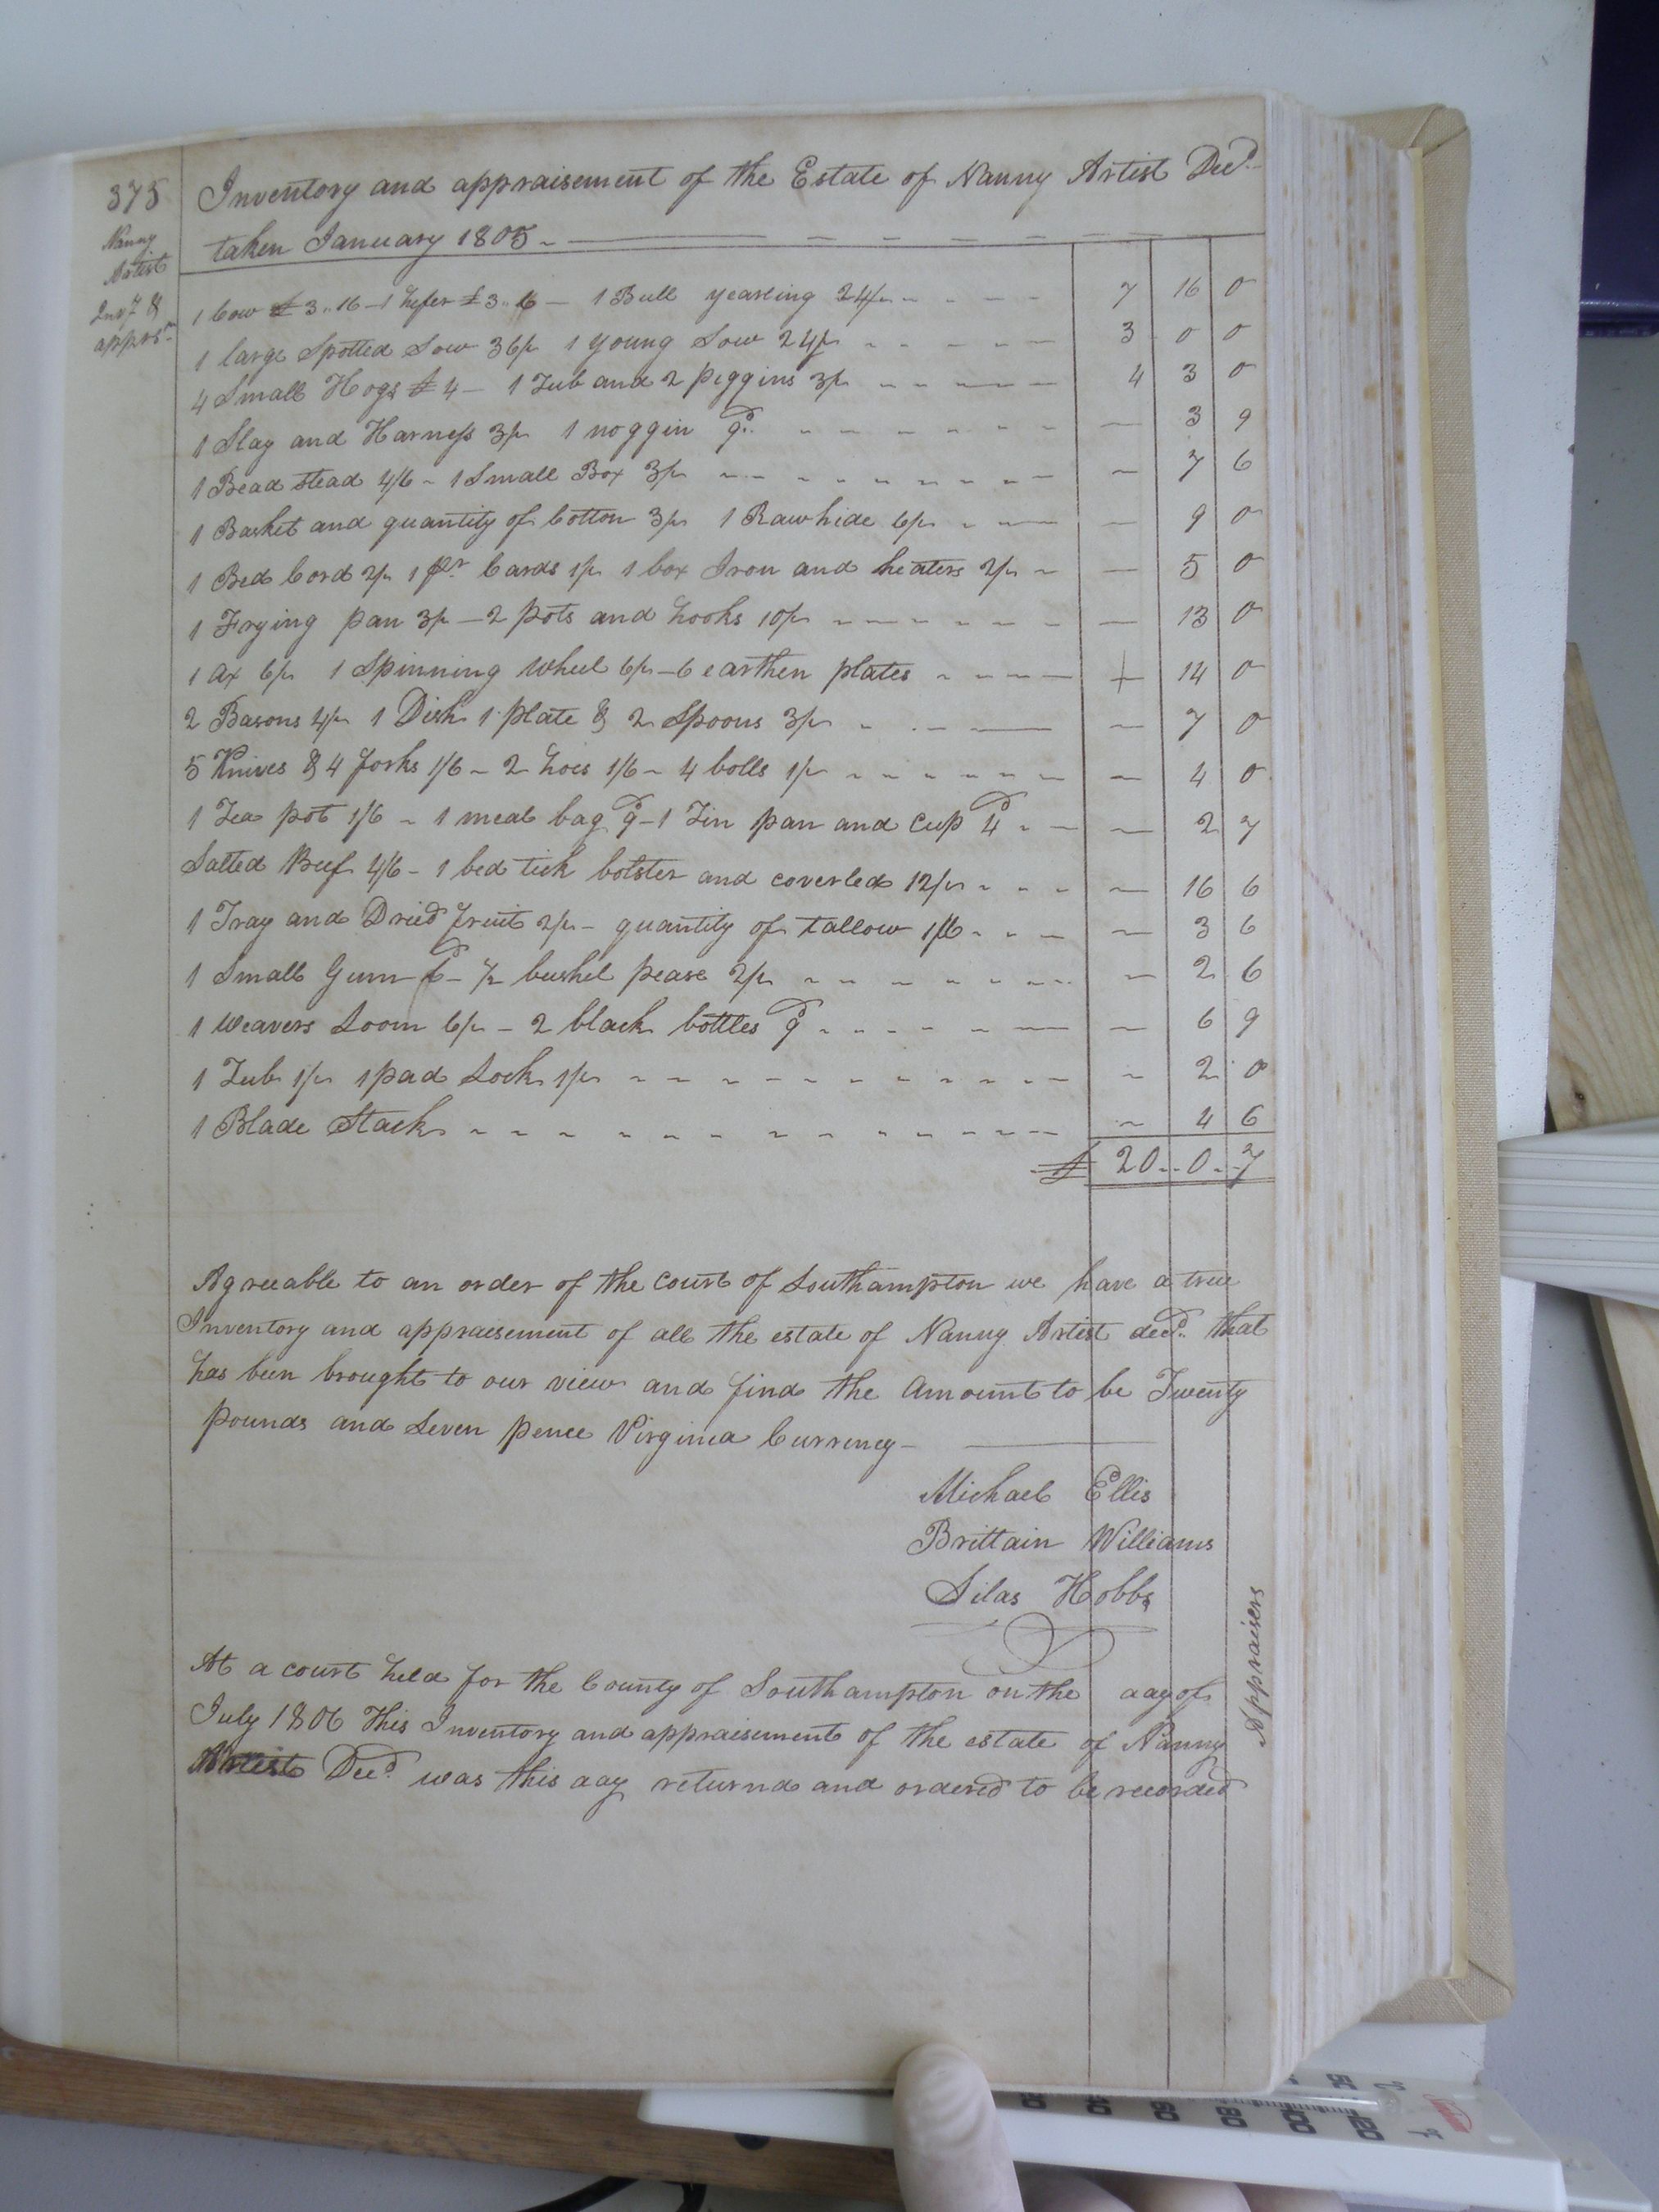 375 Inventory and appraisement of the Estate of Nanny Artist Decd.
taken January 1805
Nanny
Artist
Invy &
apprsm
1 Cow £3..16 - 1 hefer £3..16 - 1 Bull yearling 24/ 7 16 0
1 large Spotted Sow 36/ 1 young Sow 24/ 3 0 0
4 Small Hogs £4 - 1 Tub and 2 piggins 3/ 4 3 0
1 Slay and Harness 3/ 1 noggin 9d. — 3 9
1 Bead stead 4/6 - 1 Small Box 3/ — 7 6
1 Basket and quantity of Cotton 3/ 1 Rawhide 6/ — 9 0
1 Bed Cord 2/ 1 pr. Cards 1/ 1 box Iron and heaters 2/ — 5 0
1 Frying pan 3/ - 2 pots and hooks 10/ — 13 0
1 ax 6/ 1 Spinning wheel 6/ - 6 earthen plates — 14 0
2 Basons 4/ 1 Dish 1 plate & 2 Spoons 3/ — 7 0
5 Knives & 4 forks 1/6 - 2 hoes 1/6 - 4 bolls 1/ — 4 0
1 Tea pot 1/6 - 1 meal bag 9d - 1 Tin pan and Cup 4d — 2 7
Salted Beef 4/6 - 1 bed tick bolster and coverled 12/ — 16 6
1 Tray and Dried fruit 2/ - quantity of tallow 1/6 — 3 6
1 Small Gum 6d - 1/2 bushel pease 2/ — 2 6
1 Weavers Loom 6/ - 2 black bottles 9d — 6 9
1 Tub 1/ 1 pad Lock 1/ — 2 0
1 Blade Stack — 4 6
£ 20..0..7
Agreeable to an order of the court of Southampton we have a true
Inventory and appraisement of all the estate of Nanny Artist decd. that
has been brought to our view and find the amount to be Twenty
pounds and Seven pence Virginia Currency
Michael Ellis
Brittain Williams
Silas Hobbs
Appraisers
At a court held for the County of Southampton on the day of
July 1806 This Inventory and appraisement of the estate of Nanny
Artist Decd. was this day returnd and ordered to be recorded